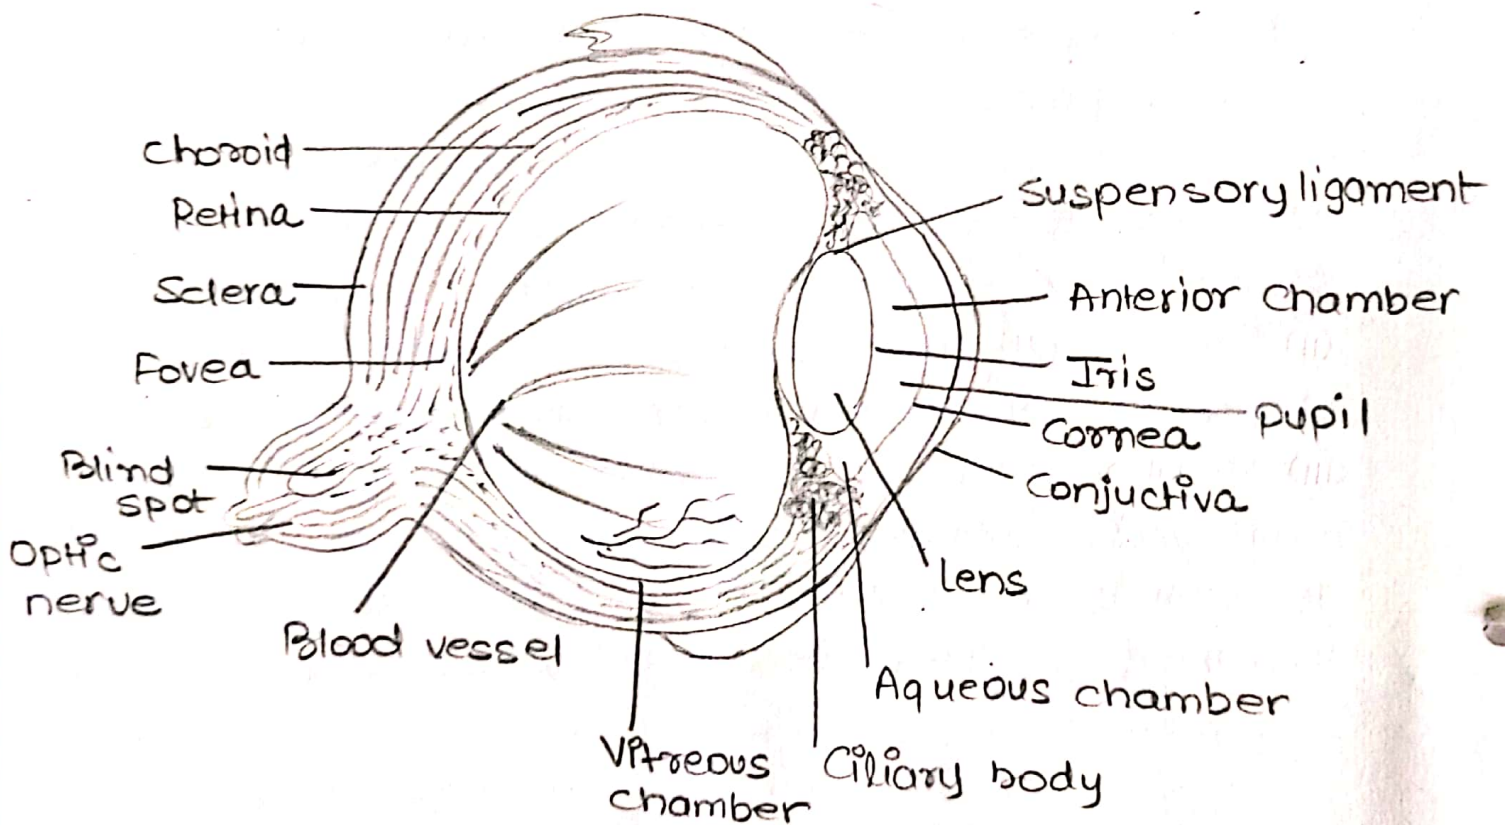 Choroid
Retina
Sclera
Fovea
Blind
spot
Optic
nerve
Blood vessel
Vitreous
chamber
Ciliary body
Aqueous chamber
Lens
Conjuctiva
Cornea
Pupil
Iris
Anterior Chamber
Suspensory ligament